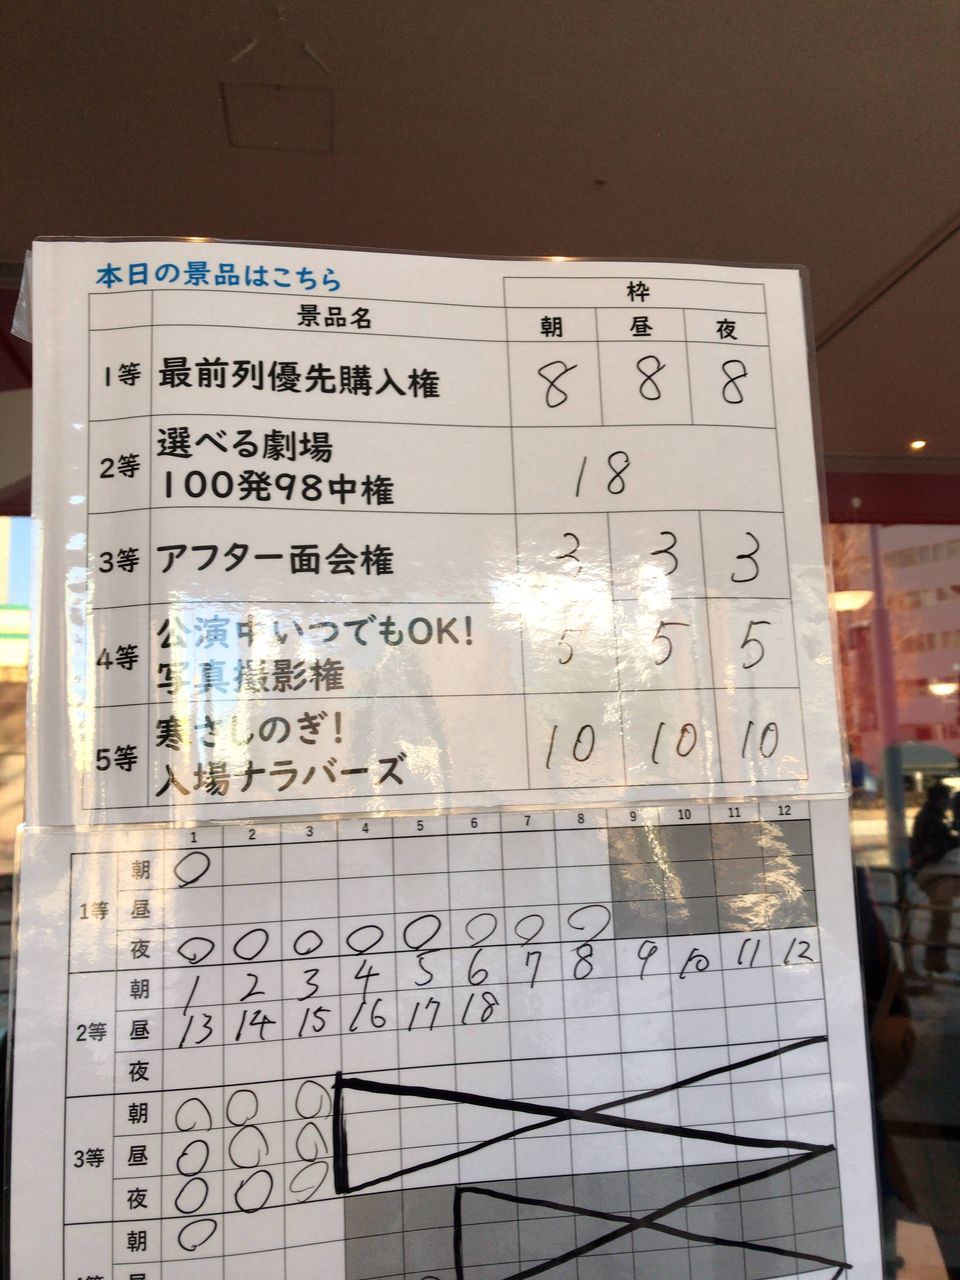 本日の景品はこちら
景品名 枠
朝 昼 夜
1等 最前列優先購入権 8 8 8
2等 選べる劇場
100発98中権 18
3等 アフター面会権 3 3 3
4等 公演中いつでもOK!
写真撮影権 5 5 5
5等 寒さしのぎ!
入場ナラバーズ 10 10 10
1 2 3 4 5 6 7 8 9 10 11 12
1等 朝 ○
昼
夜 ○ ○ ○ ○ ○ ○ ○ ○
2等 朝 1 2 3 4 5 6 7 8 9 10 11 12
昼 13 14 15 16 17 18
夜
3等 朝 ○ ○ ○
昼 ○ ○ ○
夜 ○ ○ ○
朝 ○